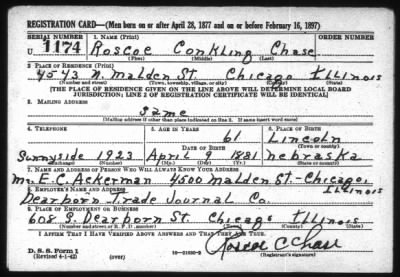 REGISTRATION CARD—(Men born on or after April 28, 1877 and on or before February 16, 1897)
SERIAL NUMBER 1. NAME (Print) ORDER NUMBER
U 1174 Roscoe Conkling Chase
(First) (Middle) (Last)
2. PLACE OF RESIDENCE (Print)
4543 N. Malden St. Chicago Illinois
(Number and street) (Town, township, village, or city) (County) (State)
[THE PLACE OF RESIDENCE GIVEN ON THE LINE ABOVE WILL DETERMINE LOCAL BOARD
JURISDICTION; LINE 2 OF REGISTRATION CERTIFICATE WILL BE IDENTICAL]
3. MAILING ADDRESS
Same
(Mailing address if other than place indicated on line 2. If same insert word same)
4. TELEPHONE 5. AGE IN YEARS 6. PLACE OF BIRTH
61 Lincoln
DATE OF BIRTH (Town or county)
Sunnyside 1923 April 9 1881 Nebraska
(Exchange) (Number) (Mo.) (Day) (Yr.) (State or country)
7. NAME AND ADDRESS OF PERSON WHO WILL ALWAYS KNOW YOUR ADDRESS
E.C. Ackerman 4500 Malden St.-Chicago, Illinois
8. EMPLOYER'S NAME AND ADDRESS
Dearborn Trade Journal Co.
9. PLACE OF EMPLOYMENT OR BUSINESS
608 S. Dearborn St. Chicago Illinois
(Number and street or R. F. D. number) (Town) (County) (State)
I AFFIRM THAT I HAVE VERIFIED ABOVE ANSWERS AND THAT THEY ARE TRUE.
Roscoe C Chase
D. S. S. Form 1
(Revised 4-1-42) (over)